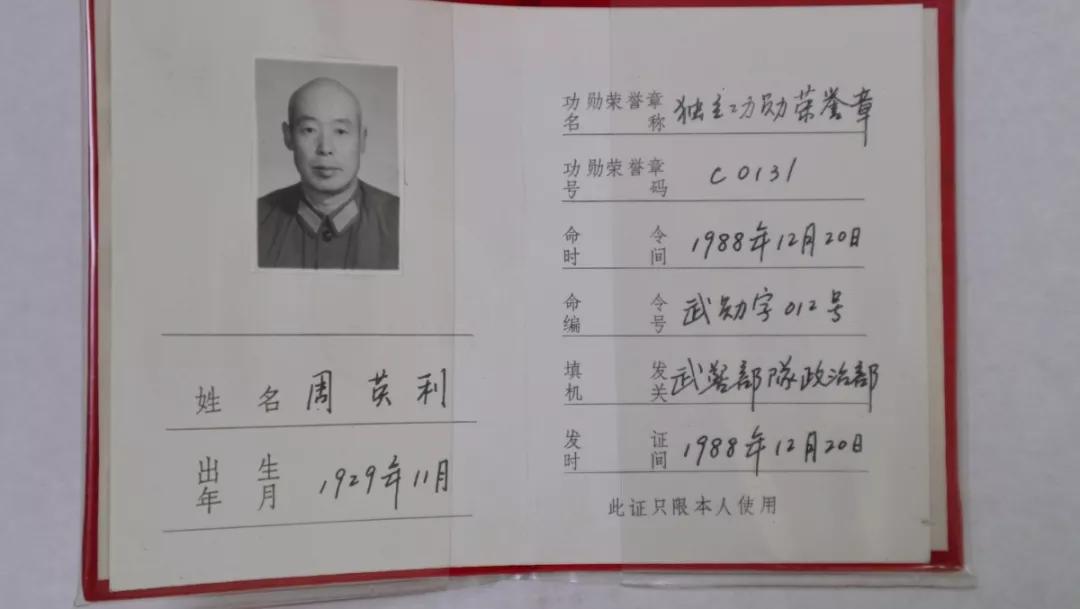 姓名 周英利
出生年月 1929年11月
功勋荣誉章名称 独立功勋荣誉章
功勋荣誉章号码 C0131
命令时间 1988年12月20日
命令编号 武勋字012号
填发机关 武警部队政治部
发证时间 1988年12月20日
此证只限本人使用